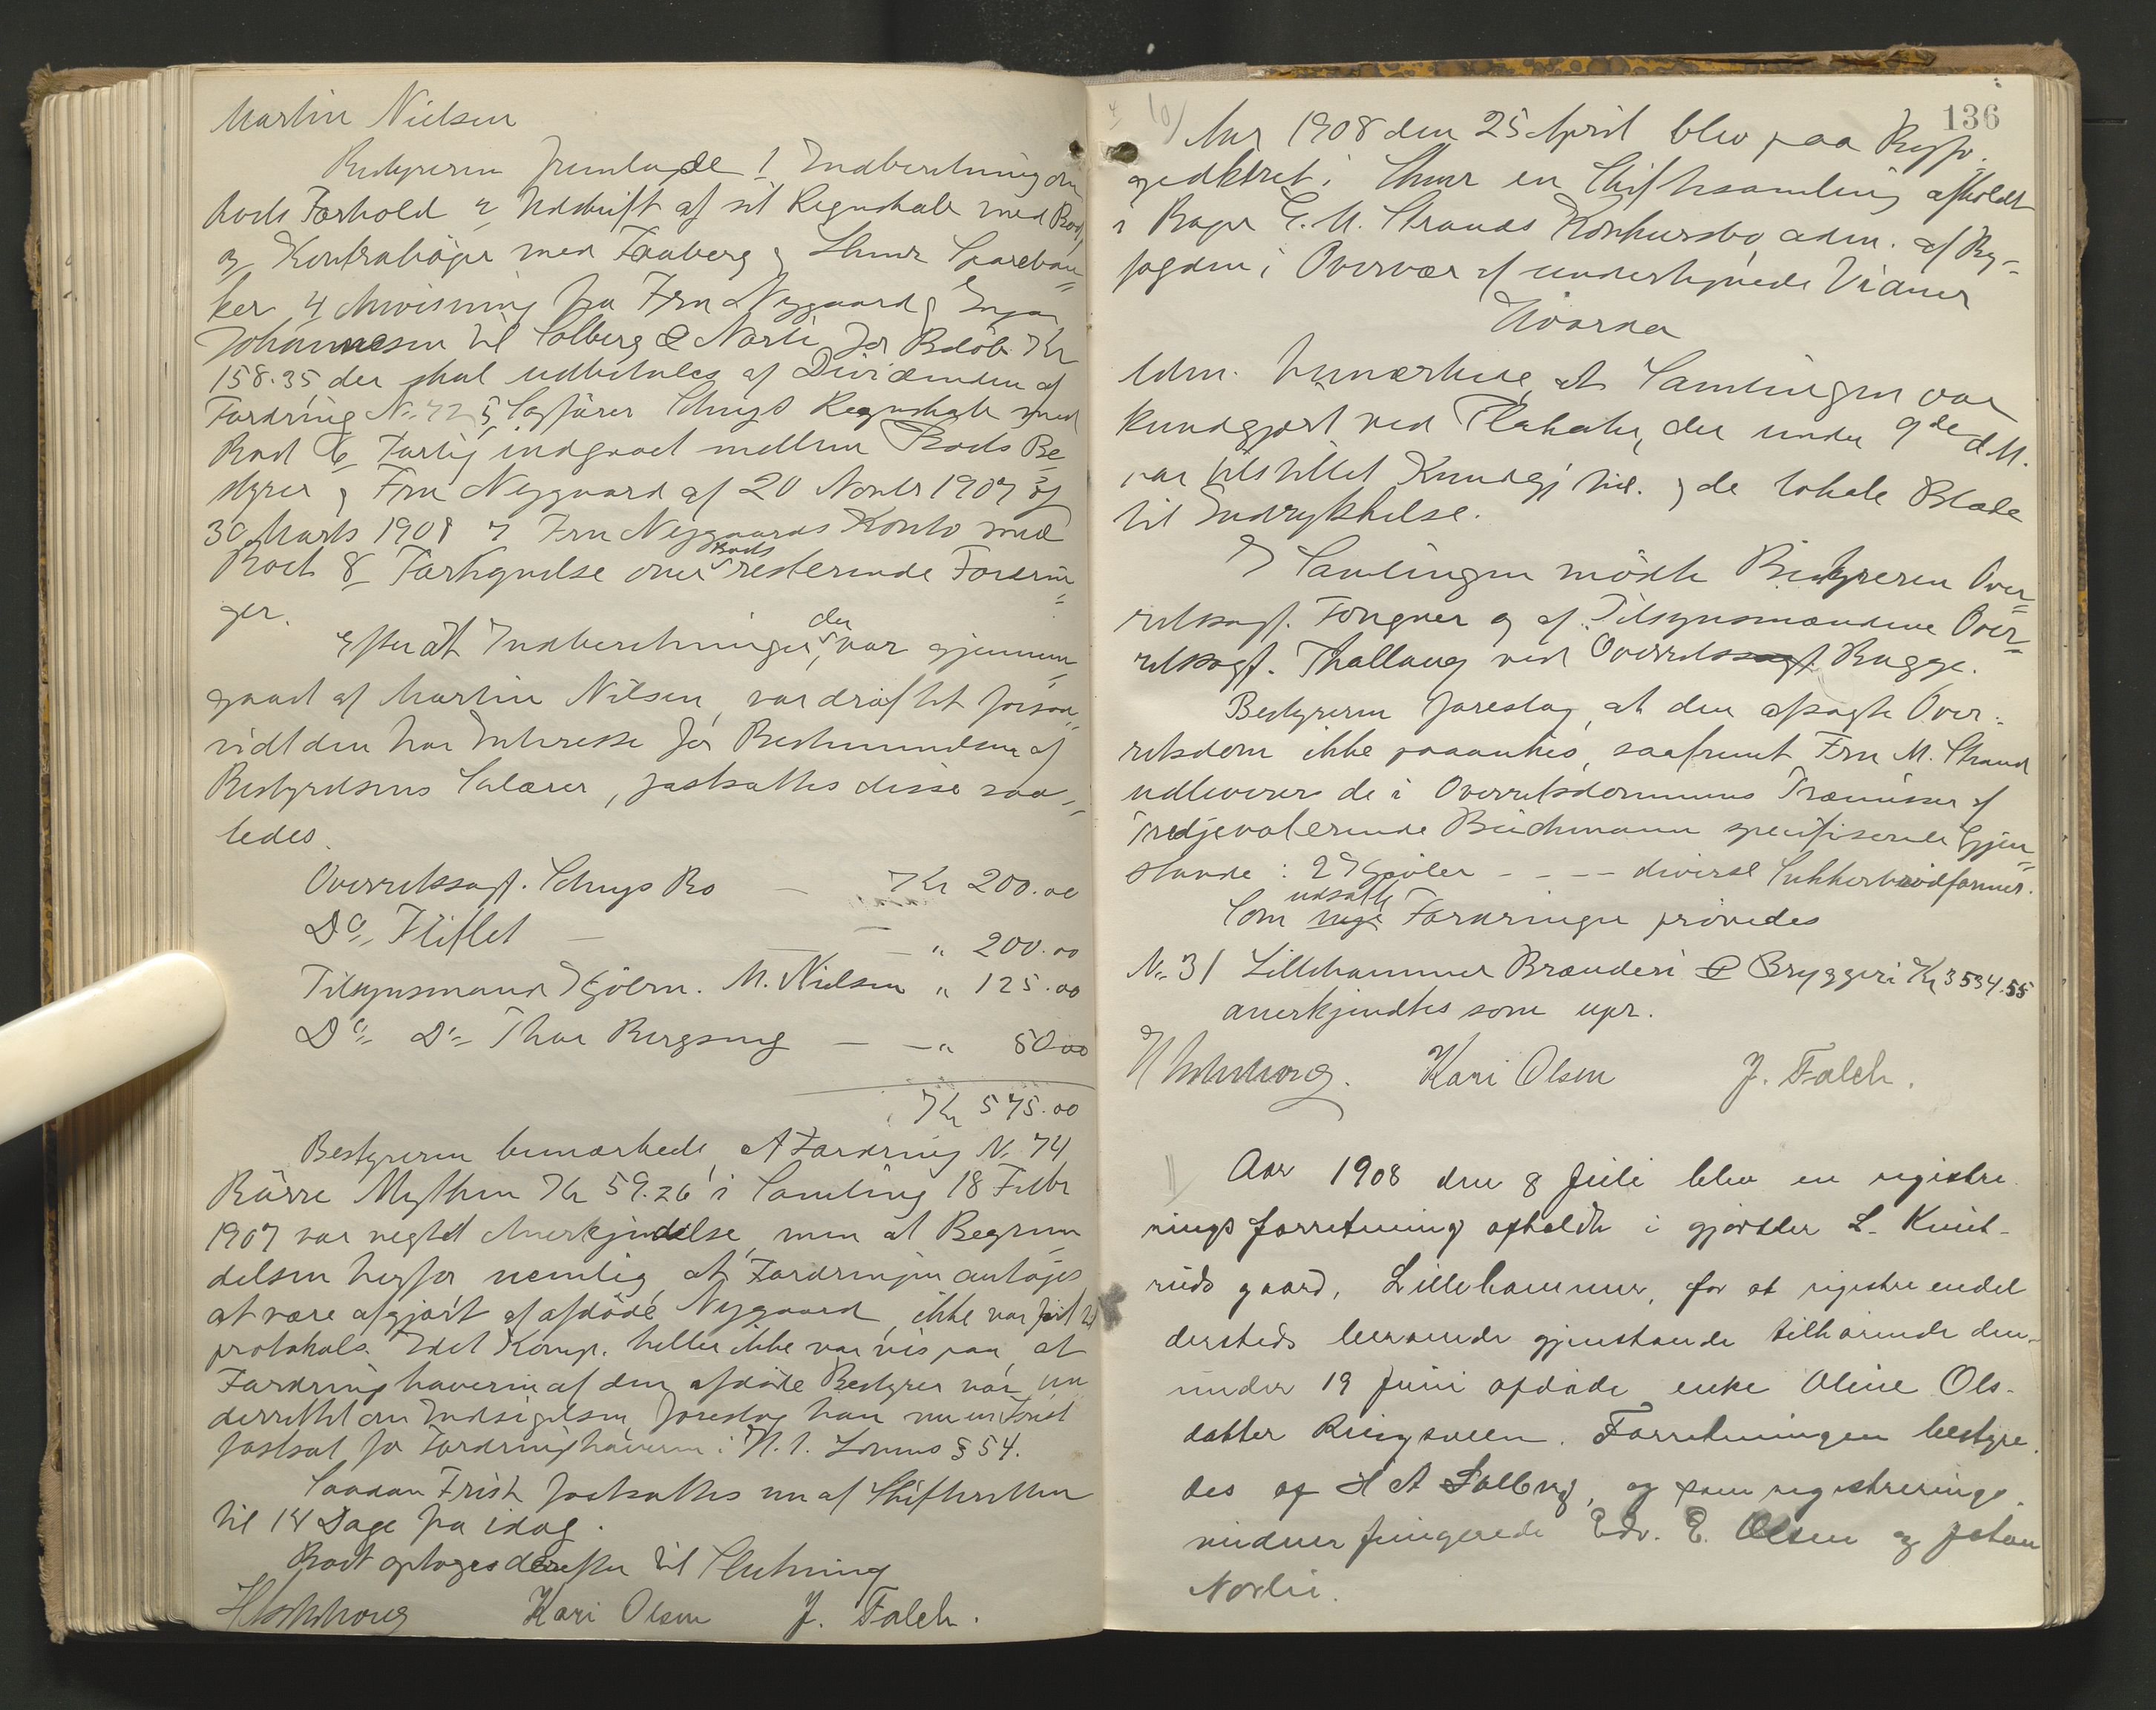 Martin Nielsen
Bestyreren fremlagde 1 Indberetning om
Boets Forhold 2 Udskrift af sit Regnskab med Boet,
og Kontrabøger med Faaberg & Lhmr Spareban=
ker 4 Anvisning fra Fru Nygaard & Inga
Johannesen til Solberg & Norli for Beløb Kr
158.35 der skal udbetales af Dividenden af
Fordring No 72 5 Sagfører Schuys Regnskab med
Boet 6 Forlig indgaaet mellem Boets Be=
styrer & Fru Nygaard af 20 Novbr 1907 og
30 Marts 1908 7 Fru Nygaards Konto med
Boet 8 Fortegnelse over Boets resterende Fordrin=
ger.
Efterat Indberetningen, der var gjennem=
gaaet af Martin Nilsen, var drøftet forsaa=
vidt den har Interesse for Bestemmelsen af
Bestyrelsens Salærer, fastsattes disse saa=
ledes.
Overretssagf. Schuys Bo — Kr 200.00
Do Fliflet — — " 200.00
Tilsynsmand Kjøbm. M. Nielsen " 125.00
Do Do Thor Bergseng — — " 50.00
Kr 575.00
Bestyreren bemærkede at Fordring No 74
Børre Mythen Kr 59.26 i Samling 18 Febr
1907 var negtet Anerkjendelse, men at Begrun=
delsen herfor nemlig, at Fordringen antages
at være afgjort af afdøde Nygaard, ikke var ført til
protokols. Idet Komp. heller ikke var vis paa, at
Fordringshaveren af den afdøde Bestyrer var un
derrettet om Indsigelsen, foreslog han nu en Frist
fastsat for Fordringshaveren i H. t. Lovens § 54.
Saadan Frist fastsattes nu af Skifteretten
til 14 Dage fra idag.
Boet optoges derefter til Slutning
Kari Olsen J. Falch.
136
10)
Aar 1908 den 25 April blev paa Byfo=
gedktret i Lhmr en Skiftesamling afholdt
i Bager E. M. Strands Konkursbo adm. af By=
fogden i Overvær af undertegnede Vidner
Hvorda
Adm. bemærkede, at Samlingen var
kundgjort ved Plakater, der under 9de d.M.
var tilstillet Kundgj tid. & de lokale Blade
til Indrykkelse.
I Samlingen mødte Bestyreren Over=
retssagf. Fongner og af Tilsynsmændene Over=
retssagf. Thallaug ved Overretssagf. Bugge.
Bestyreren foreslog, at den afsagte Over=
retsdom ikke paaankes, saafremt Fru M. Strand
udleverer de i Overretsdommens Præmisser af
tredjevoterende Bachmann specifiserede Gjen=
stande: 2 Kjoler - - - - diverse Sukkerbrødformer.
Som udsatte Fordringer prøvedes
No 31 Lillehammer Brænderi & Bryggeri Kr 3534.55
anerkjendtes som upr.
Kari Olsen J. Falch.
11)
Aar 1908 den 8 Juli blev en registre
ringsforretning afholdt i gjørtler L. Knut-
ruds gaard, Lillehammer, for at registre endel
dersteds beroende gjenstande tilhørende den
under 19 Juni afdøde enke Oline Ols-
datter Ringsveen. Forretningen bestyre
des af H A Solberg, og som registrerings
vidner fungerede Edv. E. Olsen og Johan
Norlie.